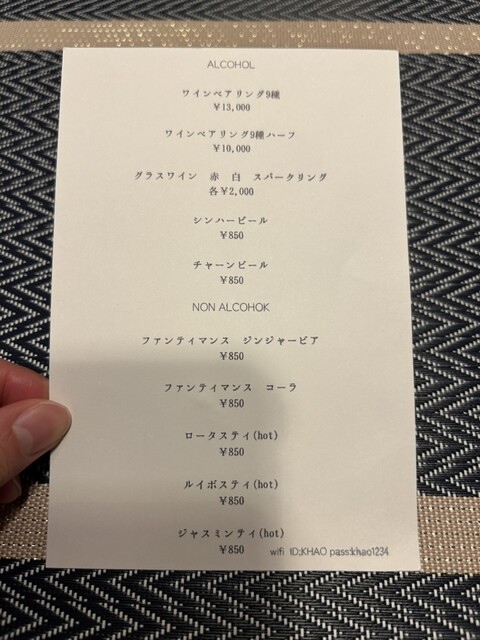 ALCOHOL
ワインペアリング9種
￥13,000
ワインペアリング9種ハーフ
￥10,000
グラスワイン　赤　白　スパークリング
各￥2,000
シンハービール
￥850
チャーンビール
￥850
NON ALCOHOK
ファンティマンス　ジンジャービア
￥850
ファンティマンス　コーラ
￥850
ロータスティ(hot)
￥850
ルイボスティ(hot)
￥850
ジャスミンティ(hot)
￥850
wifi ID;KHAO pass:khao1234